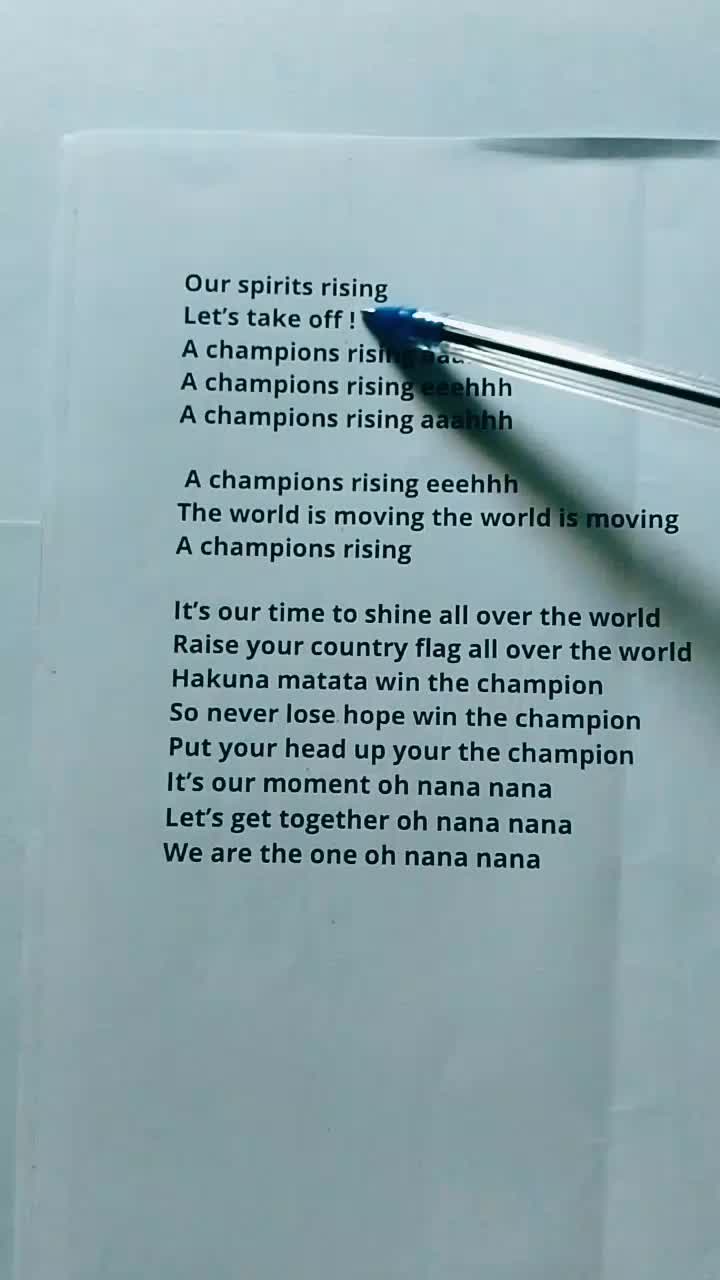 Our spirits rising
Let's take off !
A champions rising
A champions rising eeehhh
A champions rising aaahhh
A champions rising eeehhh
The world is moving the world is moving
A champions rising
It's our time to shine all over the world
Raise your country flag all over the world
Hakuna matata win the champion
So never lose hope win the champion
Put your head up your the champion
It's our moment oh nana nana
Let's get together oh nana nana
We are the one oh nana nana